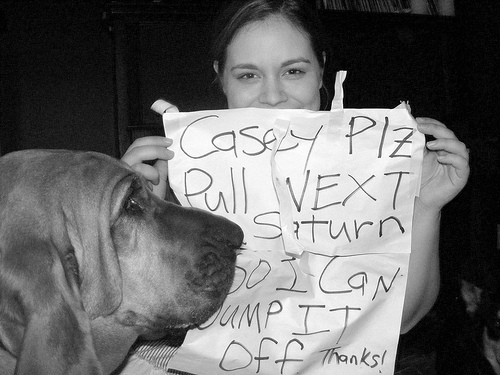 Casey Plz
Pull NEXT
Saturn
So I CAN
JUMP IT
Off Thanks!